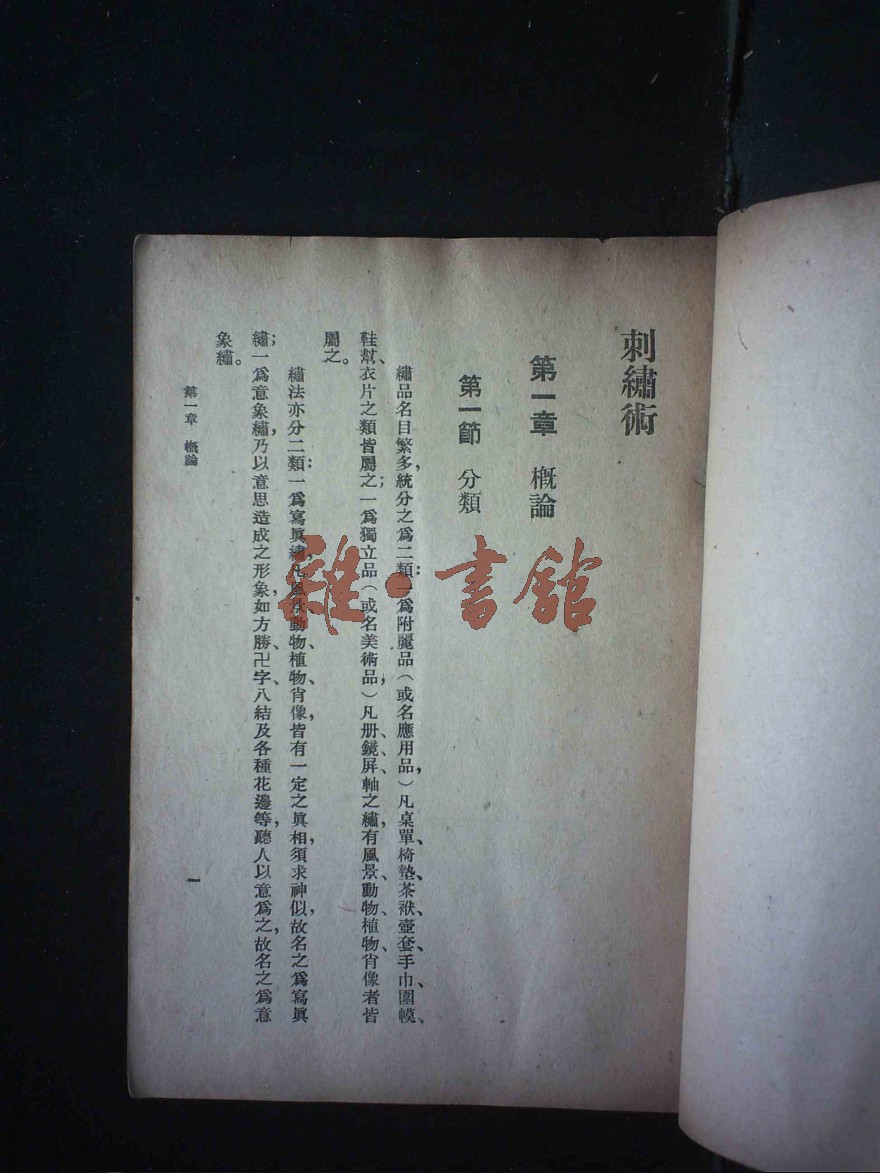 刺繡術
第一章 概論
第一節 分類
繡品名目繁多，統分之爲二類：一爲附麗品（或名應用品，）凡桌單、椅墊、茶袱、壺套、手巾、圍幙、
鞋幫、衣片之類皆屬之；一爲獨立品（或名美術品，）凡册、鏡、屏、軸之繡，有風景、動物、植物、肖像者皆
屬之。
繡法亦分二類：一爲寫眞繡，凡風景、動物、植物、肖像，皆有一定之眞相，須求神似，故名之爲寫眞
繡；一爲意象繡，乃以意思造成之形象，如方勝、卍字、八結及各種花邊等，聽人以意爲之，故名之爲意
象繡。
第一章 概論
一
雜·書館